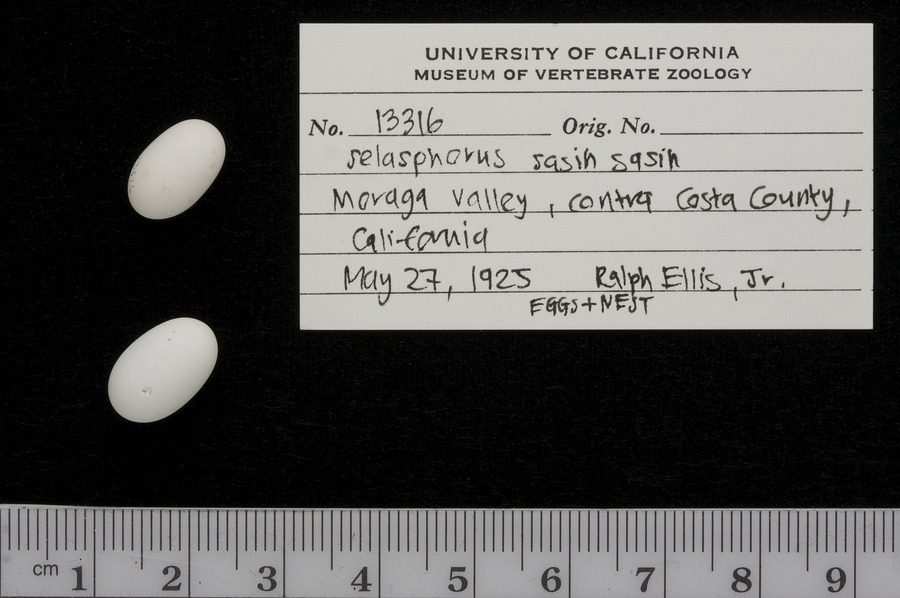 UNIVERSITY OF CALIFORNIA
MUSEUM OF VERTEBRATE ZOOLOGY
No. 13316 Orig. No.
selasphorus sasin sasin
Moraga Valley, contra Costa County,
California
May 27, 1925 Ralph Ellis, Jr.
EGGS + NEST
cm 1 2 3 4 5 6 7 8 9